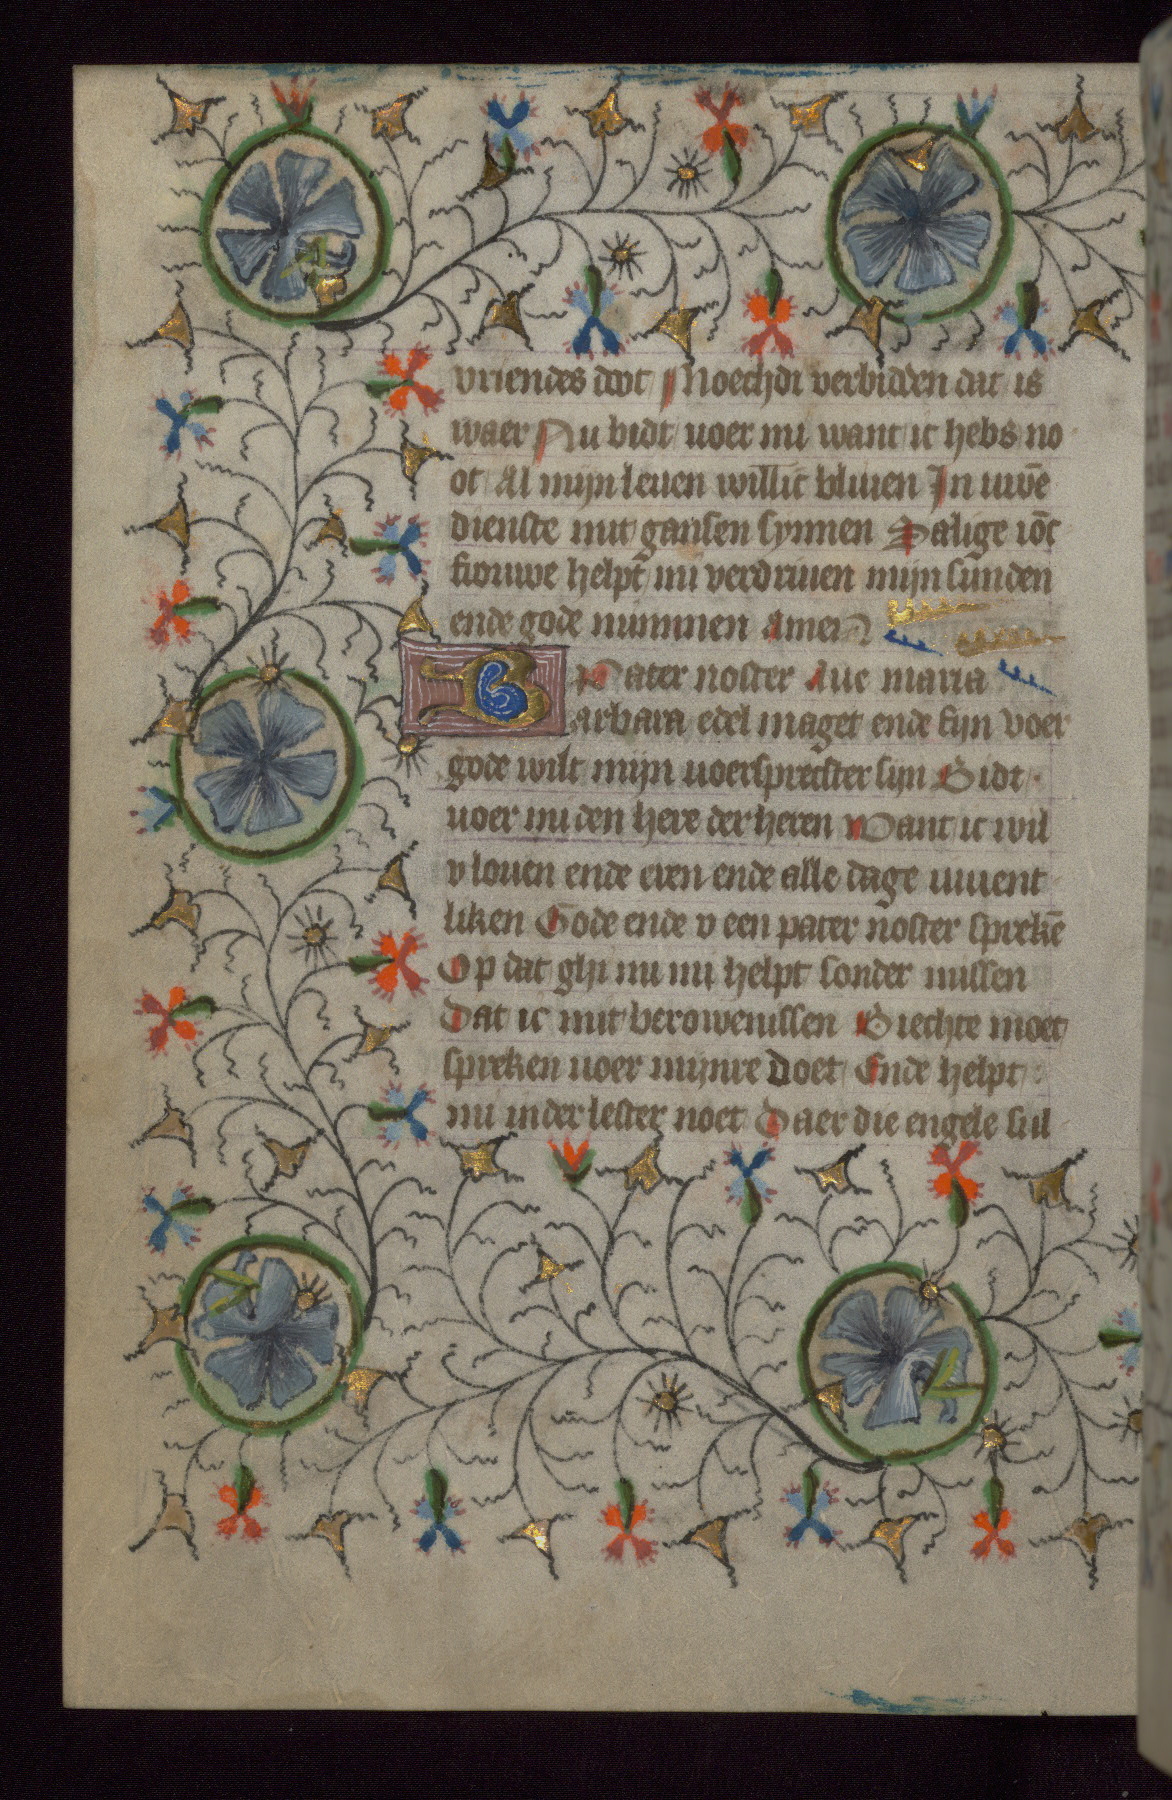 vriendes doot Noechdi verbidden dat is
waer Nu bidt voer mi want ic hebs no
ot Al mijn leven willic bliven In uwē
dienste mit gansen synnen Salige ioc
frouwe helpt mi verdriven mijn sunden
ende gode mynnen Amen
Pater noster Ave maria
Barbara edel maget ende fijn voer
gode wilt mijn voersprecster sijn Bidt
voer mi den here der heren Want ic wil
v loven ende eren ende alle dage ynnent
liken Gode ende v een pater noster sprekē
Op dat ghi mi nu helpt sonder missen
Dat ic mit berowenissen Biechte moet
spreken voer mijnre doet Ende helpt
mi in der lester noet Daer die engele sul